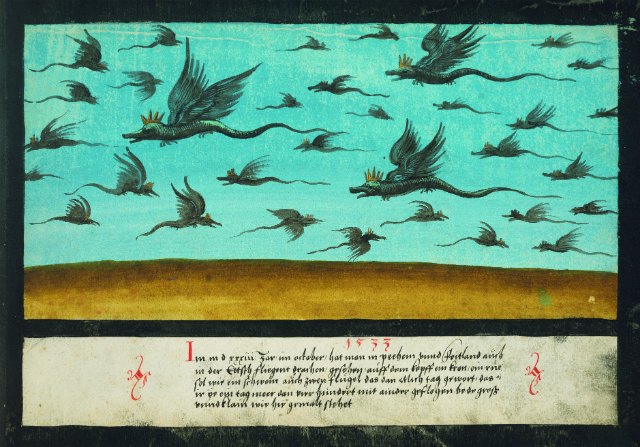 1533
Im m d xxxiii Jar im october hat man in pechem vnnd Voitland auch
in der Etsch fliegent drachen gesechen auff dem kopff ein kron ein rüe
sel wie ein schwein auch zwen flügel das dan etlich tag gewert das
ir vr ein tag meer dan vier hundert mit ainder geflogen bede groß
vnnd klain wie hie gemalt stehet